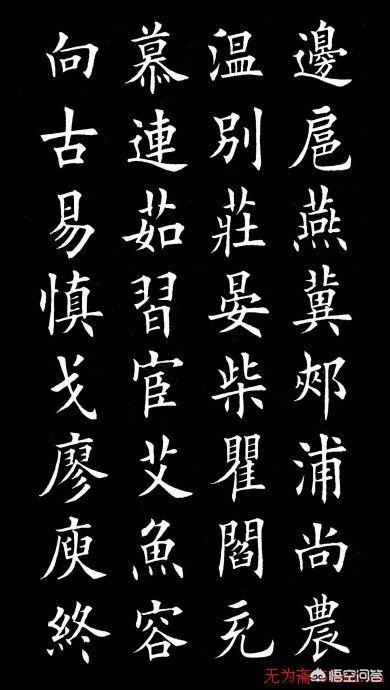 邊扈燕冀郟浦尚農
溫別莊晏柴瞿閻充
慕連茹習宦艾魚容
向古易慎戈廖庾終
无为斋
悟空问答